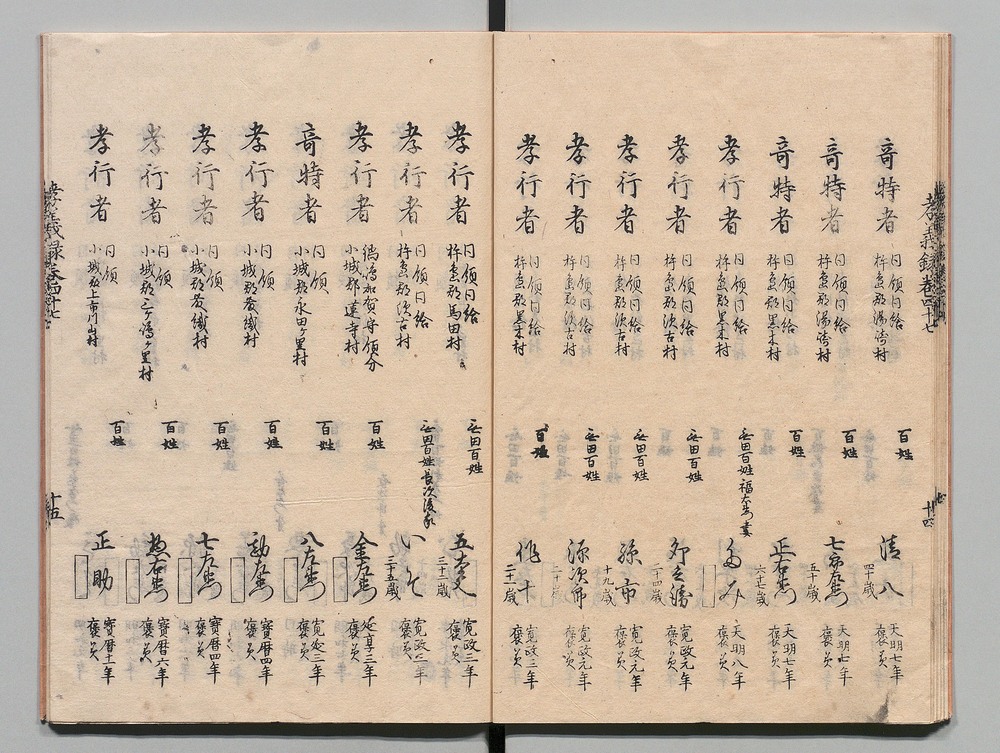 孝義録巻四十七
十四
奇特者 同領同給 杵島郡湯崎村 百姓 清八 四十歳 天明七年 褒美
奇特者 同領同給 杵島郡湯崎村 百姓 七郎左衛門 五十歳 天明七年 褒美
奇特者 同領同給 杵島郡黒木村 百姓 正右衛門 六十七歳 天明七年 褒美
孝行者 同領同給 杵島郡黒木村 無田百姓福左衛門妻 たみ 天明八年 褒美
孝行者 同領同給 杵島郡須古村 無田百姓 卯之勝 二十四歳 寛政元年 褒美
孝行者 同領同給 杵島郡須古村 無田百姓 弥市 十九歳 寛政元年 褒美
孝行者 同領同給 杵島郡須古村 無田百姓 源次郎 寛政元年 褒美
孝行者 同領同給 杵島郡黒木村 百姓 作十 二十一歳 寛政三年 褒美
孝行者 同領同給 杵島郡馬田村 無田百姓 五太夫 三十二歳 寛政三年 褒美
孝行者 同領同給 杵島郡須古村 無田百姓長次後家 いそ 三十五歳 寛政三年 褒美
孝行者 鍋島加賀守領分 小城郡蓮寺村 百姓 金左衛門 延享三年 褒美
奇特者 同領 小城郡永田ケ里村 百姓 八左衛門 寛延三年 褒美
孝行者 同領 小城郡麦織村 百姓 勘左衛門 寳暦四年 褒美
孝行者 同領 小城郡麦織村 百姓 七左衛門 寳暦四年 褒美
孝行者 同領 小城郡三ケ島ケ里村 百姓 惣右衛門 寳暦六年 褒美
孝行者 同領 小城郡上市川山村 百姓 正助 寳暦十一年 褒美
孝義録巻四十七
十五